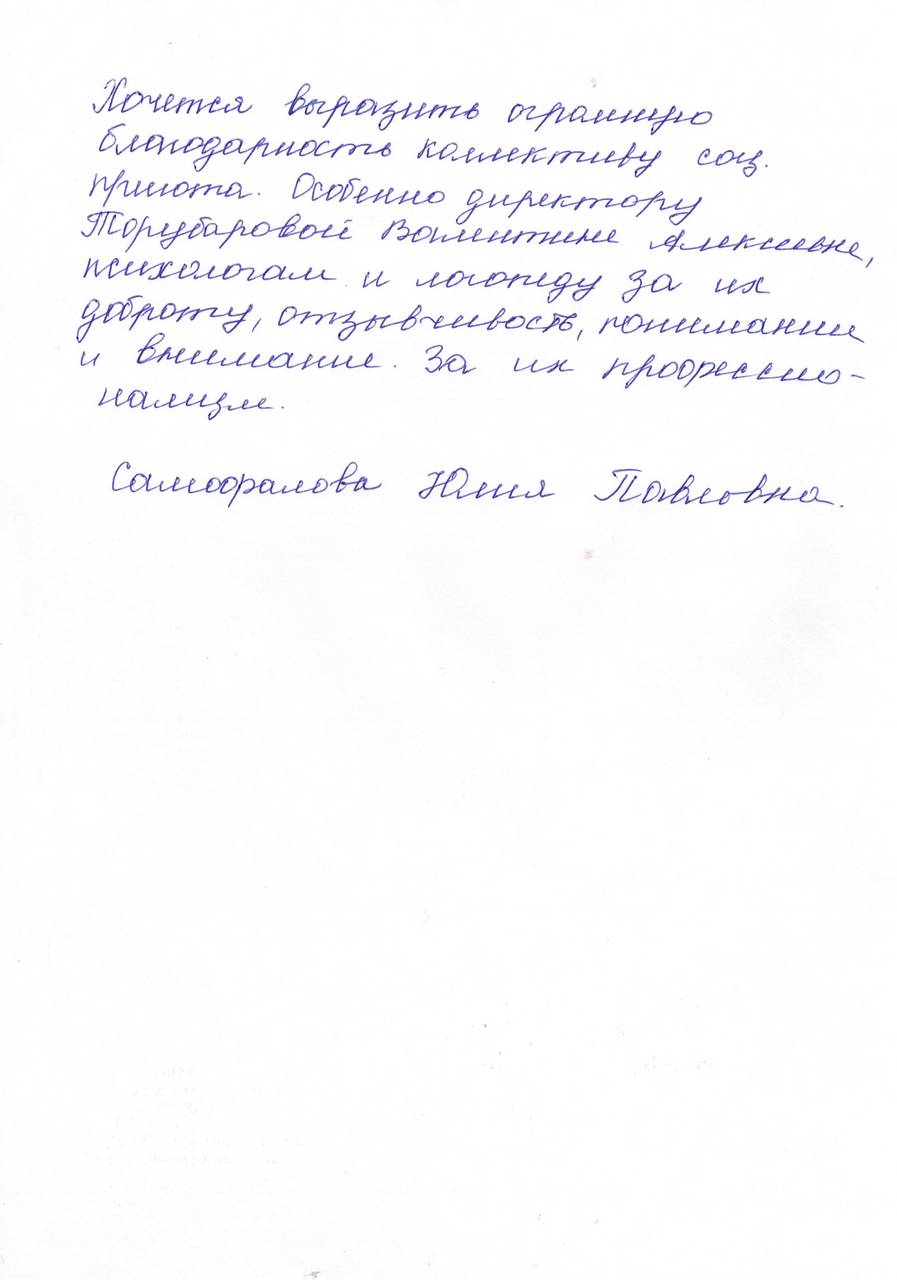 Хочется выразить огромную
благодарность коллективу соц.
приюта. Особенно директору
Торубаровой Валентине Алексеевне,
психологам и логопеду за их
доброту, отзывчивость, понимание
и внимание. За их профессио-
нализм.
Самофалова Юлия Павловна.